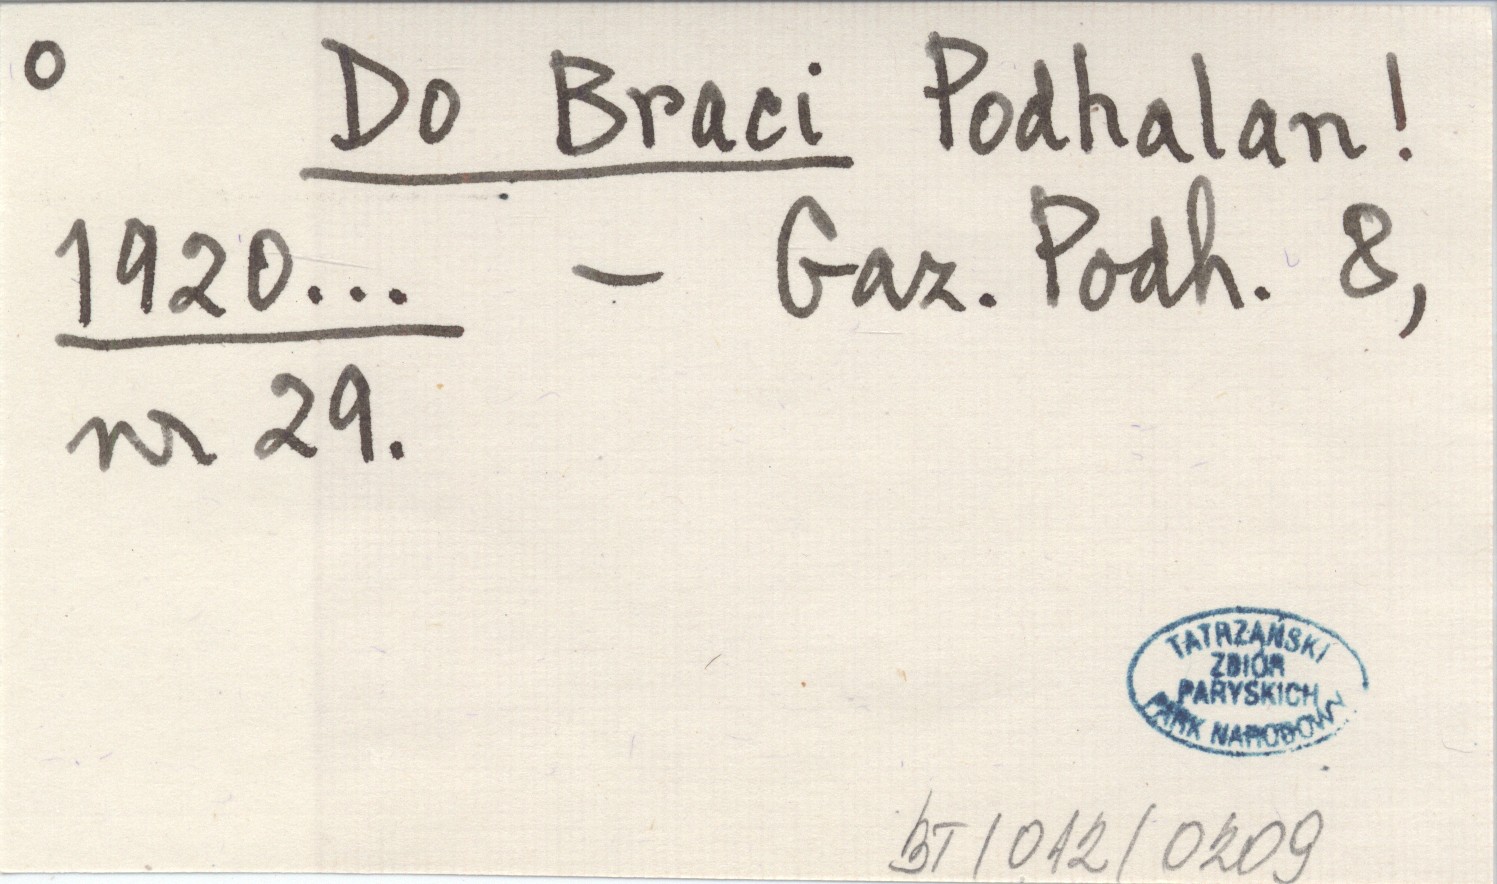 o Do Braci Podhalan!
1920... – Gaz. Podh. 8,
nr 29.
TATRZAŃSKI
ZBIÓR
PARYSKICH
PARK NARODOWY
BT/012/0209